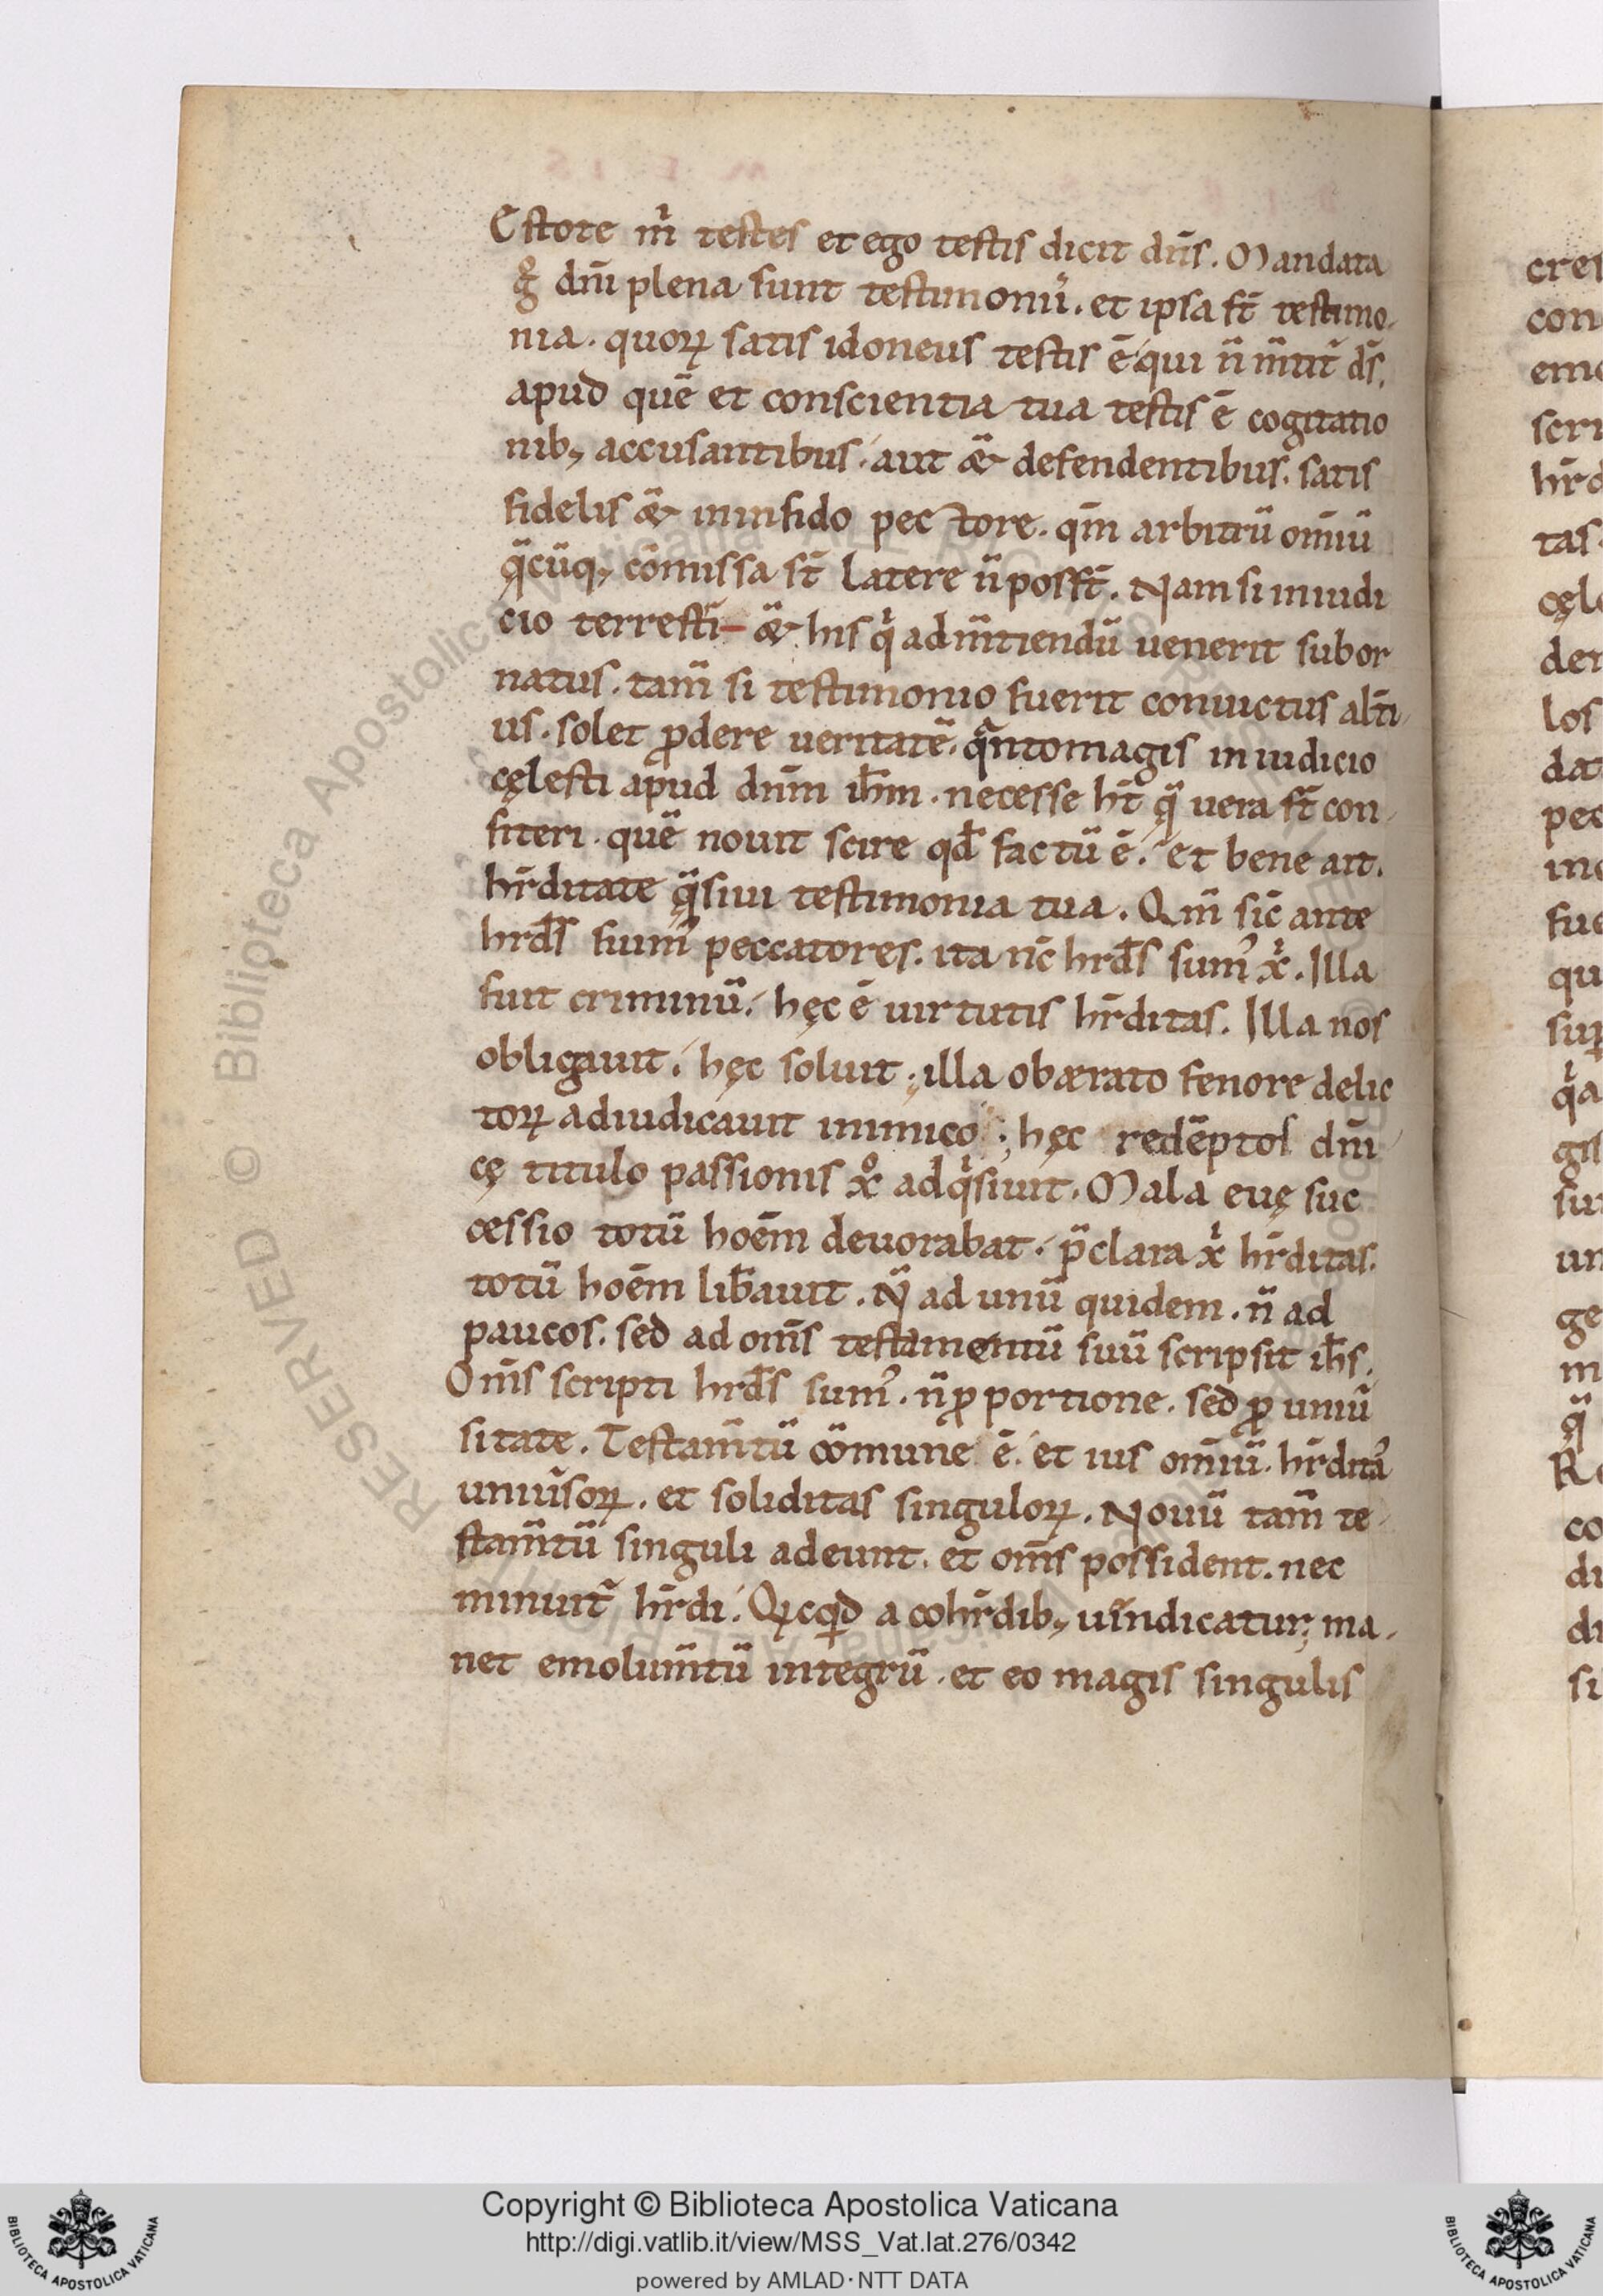 Estore m̄ testes et ego testis dicit dn̄s. Mandata
g̊ dn̄i plena sunt testimonii. et ipsa st̄ testimo
nia. quoꝝ satis idoneus testis ē qui n̄ m̄tit̃ ds̄.
apud quē et conscientia tua testis ē cogitatio
nib; accusantibus. aut æ̃ defendentibus. satis
fidelis æ̃ ininfido pectore. qm̄ arbitriū om̄iū
q̃cūq; cōmissa st̄ latere n̄ posst̄. Nam si in iudi
cio terresti æ̃ his qͥ ad m̄tiendū uenerit subor
natus. tam̄ si testimonio fuerit conuictus alt̄i
us. solet ꝓdere ueritatē. qͣnto magis in iudicio
cęlesti apud dn̄m ih̄m. necesse ht̄ q̃ uera st̄ con
fiteri. quē nouit scire qd̄ factū ē. Et bene ait.
hr̄ditate q̃siui testimonia tua. Qm̄ sic̄ ante
hrd̄s fuim᾽ peccatores. ita nc̄ hrd̄s sum᾽ xͥ. Illa
fuit criminū. hęc ē uirtutis hr̄ditas. Illa nos
obligauit. hęc soluit; illa obærato fenore delic
toꝝ adiudicauit inimico; hęc redēptos dn̄i
cę titulo passionis xº adqͥsiuit. Mala euę suc
cessio totū hoēm deuorabat. p̃clara xͥ hr̄ditas.
totū hoēm lib̄auit. N̄ ad unū quidem. n̄ ad
paucos. sed ad om̄s testamentū suū scripsit ih̄s.
Om̄s scripti hrd̄s sum᾽. n̄ ꝓ portione. sed ꝓ uniũ
sitate. Testam̄tū cōmune ē. et ius om̄iū. hr̄dita᾽
uniũsoꝝ. et soliditas singuloꝝ. Nouū tam̄ te
stam̄tū singuli adeunt. et om̄s possident. nec
minuit̃ hr̄di. Qͥcqͥd a cohr̄dib; uindicatur; ma
net emolum̄tū integrū. et eo magis singulis
Copyright © Biblioteca Apostolica Vaticana
http://digi.vatlib.it/view/MSS_Vat.lat.276/0342
powered by AMLAD·NTT DATA